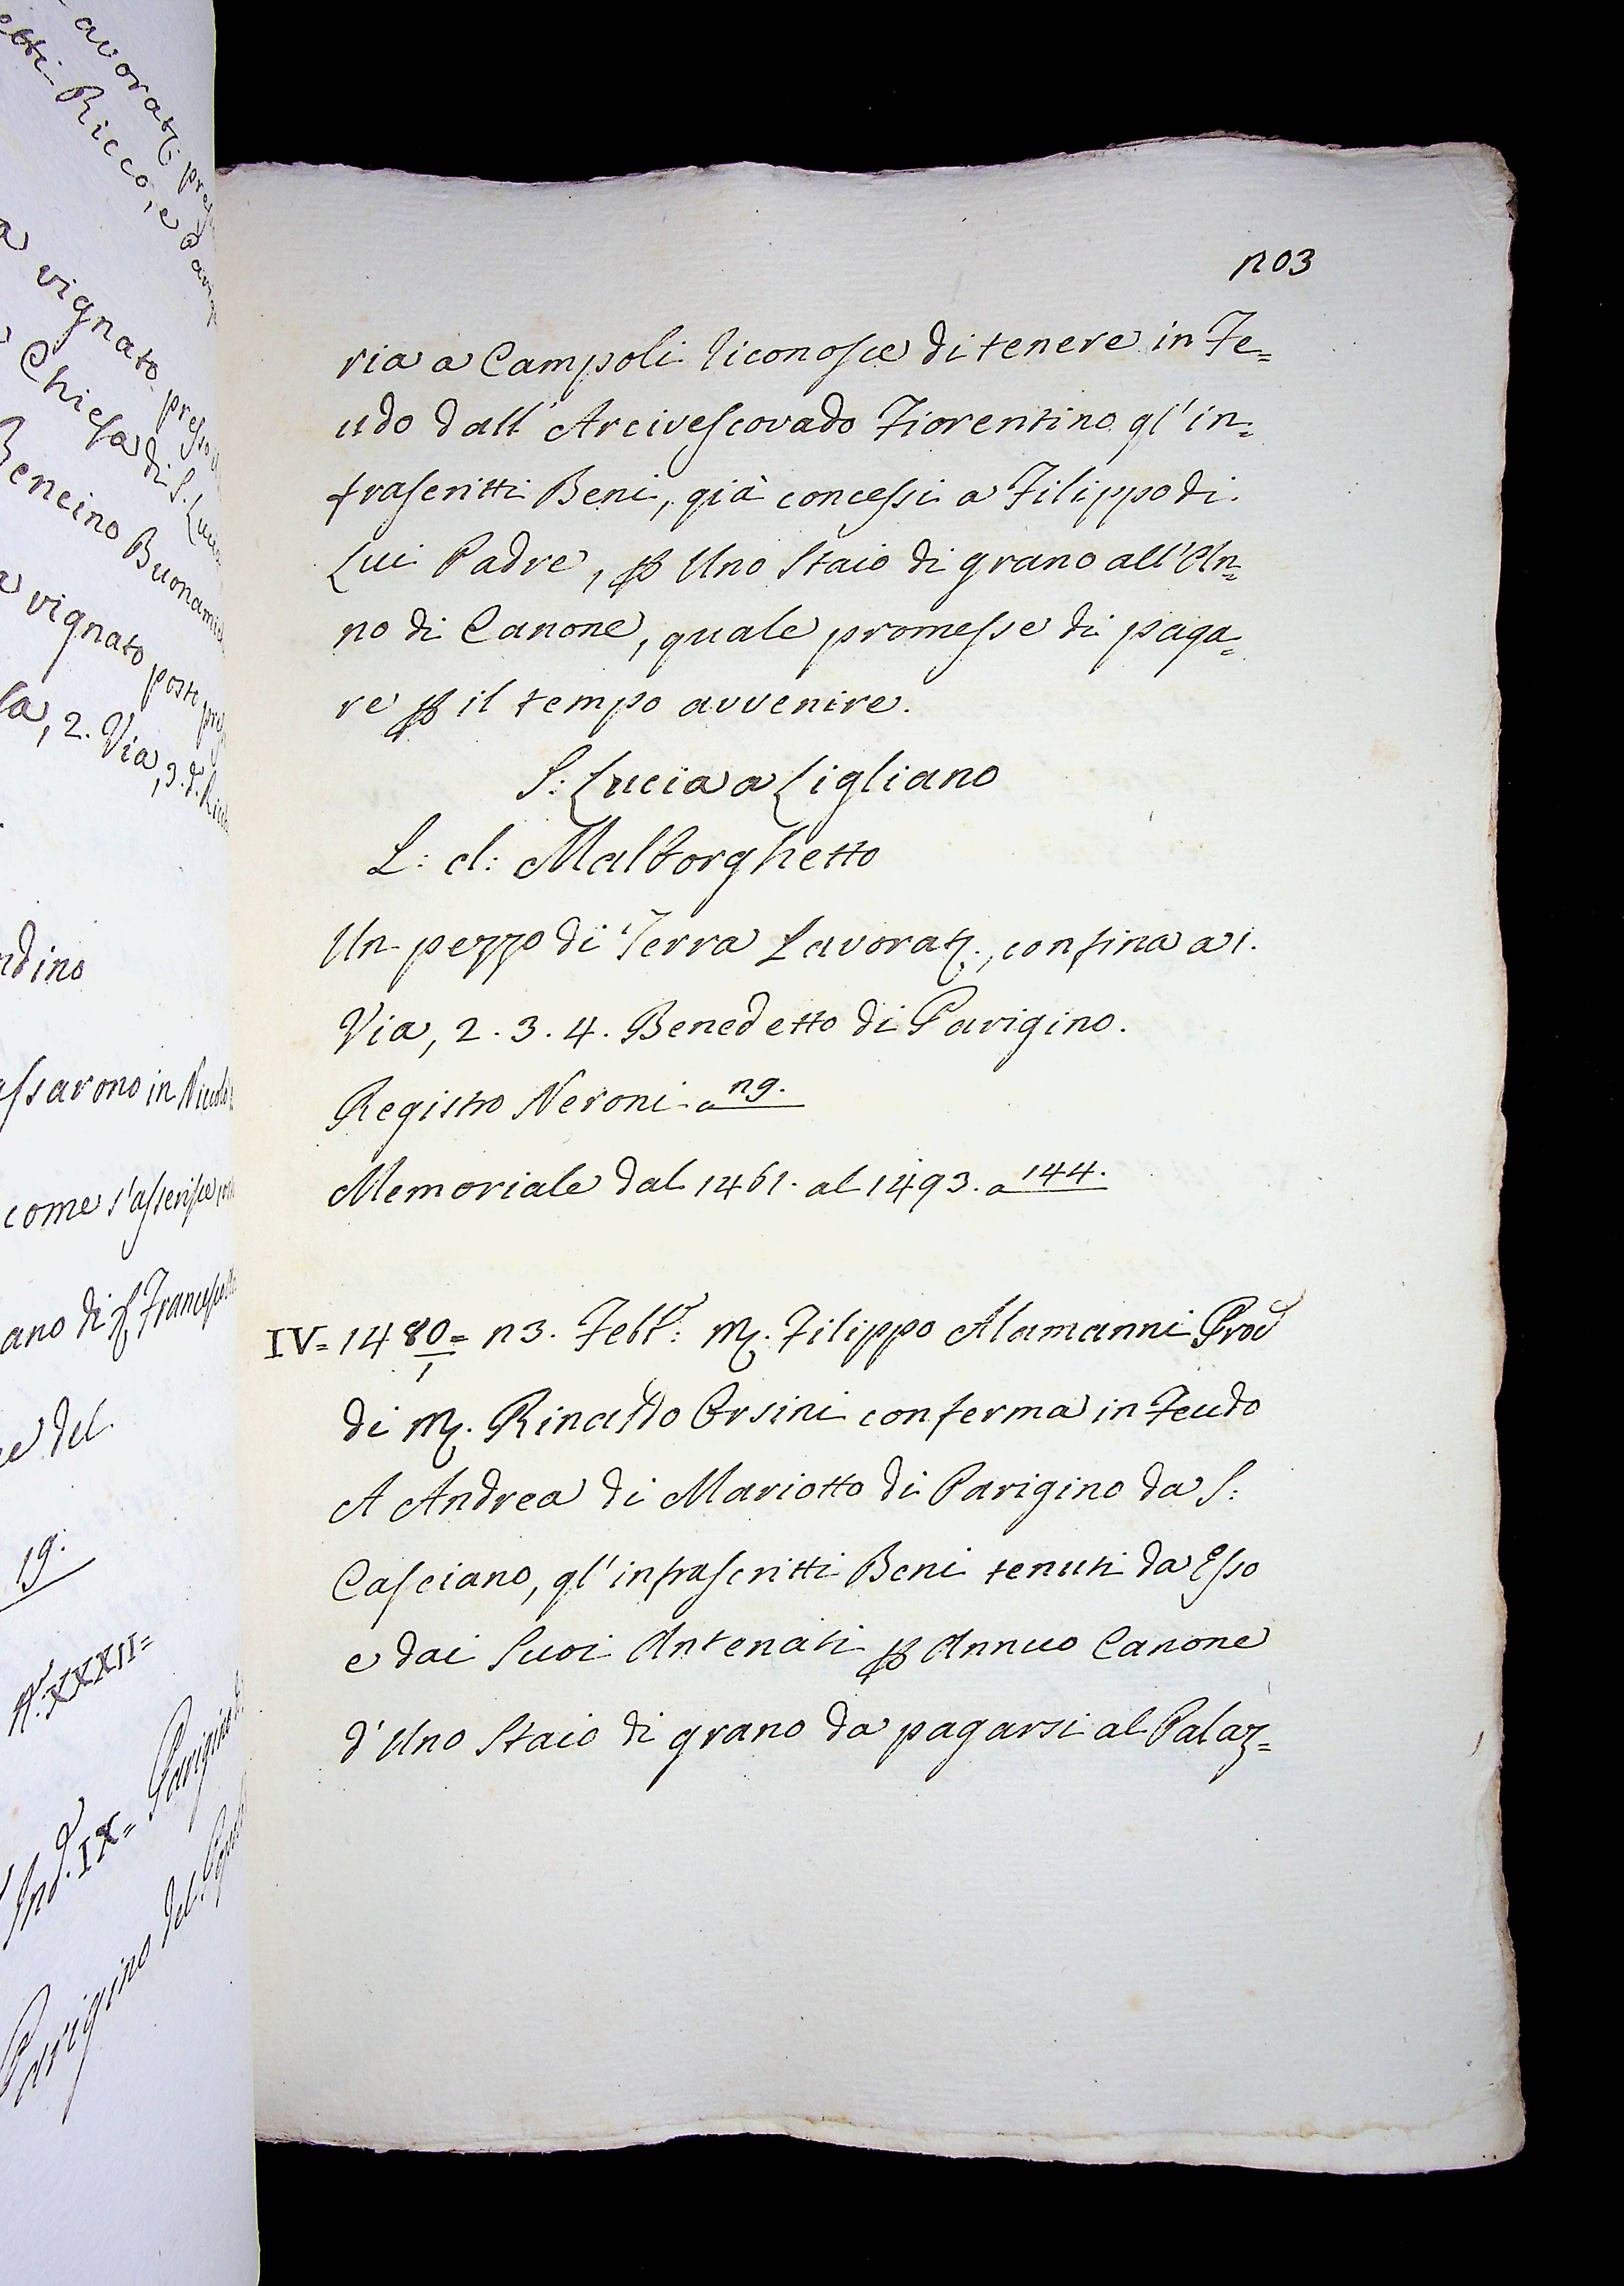 avorat: pre
etti Ricco, e
a vignato presso
Chiesa di S. Lucia
Bencino Buonami
a vignato posto pre
sa, 2. Via, 3. d.
ndino
assarono in Niccolò
come s'asserisce
ano di Francesco
e del
19.
A. XXXII=
Ind. IX= Parigino
Parigino del Popolo
203
ria a Campoli riconosce di tenere in Fe=
udo dall'Arcivescovado Fiorentino gl'in=
frascritti Beni, già concessi a Filippo di
Lui Padre, p Uno Staio di grano all'An=
no di Canone, quale promesse di paga=
re p il tempo avvenire.
S: Lucia a Ligliano
L: d: Malborghetto
Un pezzo di Terra Lavorat:, confina a 1.
Via, 2. 3. 4. Benedetto di Parigino.
Registro Neroni a 29.
Memoriale dal 1461. al 1493. a 144.
IV= 1480/1= 23. Febb: M. Filippo Alamanni Prod
di M. Rinaldo Orsini conferma in Feudo
A Andrea di Mariotto di Parigino da S:
Casciano, gl'infrascritti Beni tenuti da Esso
e dai Suoi Antenati p Annuo Canone
d'Uno Staio di grano da pagarsi al Palaz=